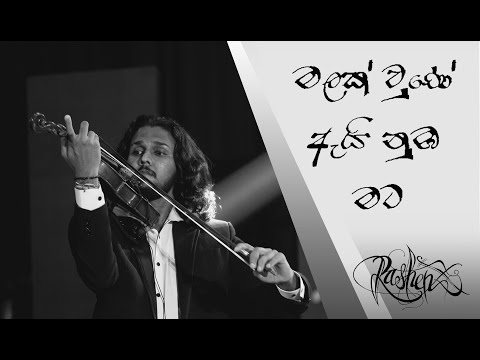 මලක් වුණේ
ඇයි නුඹ
මට
Rashen